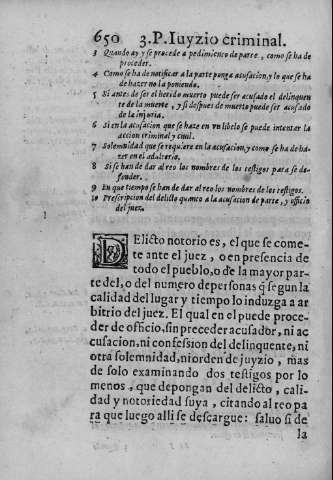 650 3.P.Iuyzio criminal.
3 Quando ay y se procede a pedimiento de parte, como se ha de
proceder.
4 Como se ha de notificar a la parte ponga acusacion, y lo que se ha
de hazer no la poniendo.
5 Si antes de ser el herido muerto puede ser acusado el delinquen
te de la muerte, y si despues de muerto puede ser acusado
de la injuria.
6 Si en la acusacion que se haze en vn libelo se puede intentar la
accion criminal y ciuil.
7 Solemnidad que se requiere en la acusacion, y como se ha de ha-
zer en el adulterio.
8 Si se han de dar al reo los nombres de los testigos para se de-
fender.
9 En que tiempo se han de dar al reo los nombres de los testigos.
10 Prescripcion del delicto quanto a la acusacion de parte, y officio
del juez.
DElicto notorio es, el que se come-
te ante el juez, o en presencia de
todo el pueblo, o de la mayor par-
te del, o del numero de personas q̃ segun la
calidad del lugar y tiempo lo induzga a ar
bitrio del juez. El qual en el puede proce-
der de officio, sin preceder acusador, ni ac
cusacion, ni confession del delinquente, ni
otra solemnidad, ni orden de juyzio, mas
de solo examinando dos testigos por lo
menos, que depongan del delicto, cali-
dad y notoriedad suya, citando al reo pa
ra que luego alli se descargue: saluo si de
la